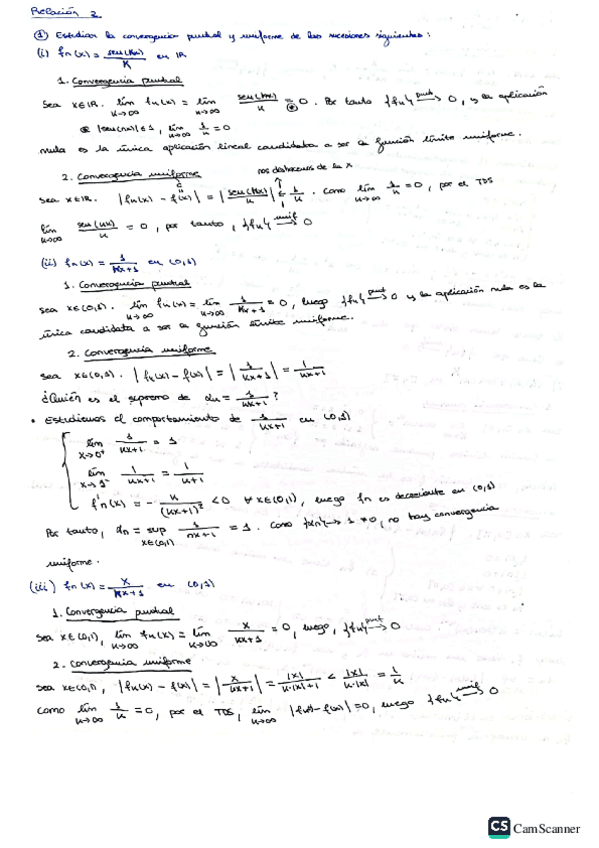 Relación 2
① Estudiar la convergencia puntual y uniforme de las sucesiones siguientes:
(i) fn(x) = sen(nx)/n en ℝ
1. Convergencia puntual
Sea x∈ℝ. lim n→∞ fn(x) = lim n→∞ sen(nx)/n =⊛ 0. Por tanto {fn} →punt 0, y la aplicación
⊛ |sen(nx)|≤1, lim n→∞ 1/n = 0
nula es la única aplicación lineal candidata a ser la función límite uniforme.
nos deshacemos de la x
2. Convergencia uniforme
Sea x∈ℝ. |fn(x) - f(x)| = |sen(nx)/n| ≤ 1/n. Como lim n→∞ 1/n = 0, por el TDS
lim n→∞ sen(nx)/n = 0, por tanto, {fn} →unif 0
(ii) fn(x) = 1/(nx+1) en (0,1)
1. Convergencia puntual
Sea x∈(0,1). lim n→∞ fn(x) = lim n→∞ 1/(nx+1) = 0, luego {fn} →punt 0 y la aplicación nula es la
única candidata a ser la función límite uniforme.
2. Convergencia uniforme
Sea x∈(0,1). |fn(x) - f(x)| = |1/(nx+1)| = 1/(nx+1)
¿Quién es el supremo de αn = 1/(nx+1)?
• Estudiemos el comportamiento de 1/(nx+1) en (0,1)
lim x→0⁺ 1/(nx+1) = 1
lim x→1⁻ 1/(nx+1) = 1/(n+1)
f'n(x) = - n/(nx+1)² < 0 ∀x∈(0,1), luego fn es decreciente en (0,1)
Por tanto, αn = sup x∈(0,1) 1/(nx+1) = 1. Como {αn} → 1 ≠ 0, no hay convergencia
uniforme.
(iii) fn(x) = x/(nx+1) en (0,1)
1. Convergencia puntual
Sea x∈(0,1), lim n→∞ fn(x) = lim n→∞ x/(nx+1) = 0, luego, {fn} →punt 0
2. Convergencia uniforme
Sea x∈(0,1), |fn(x) - f(x)| = |x/(nx+1)| = |x|/(n·|x|+1) < |x|/(n·|x|) = 1/n
Como lim n→∞ 1/n = 0, por el TDS, lim n→∞ |fn(x)-f(x)| = 0, luego {fn} →unif 0
CS CamScanner